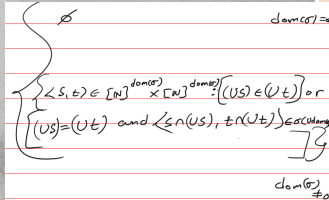 ∅ dom(σ)=0
{<s,t> ∈ [N]^dom(σ) × [N]^dom(σ) : [(∪s) ∈ (∪t)] or
[(∪s)=(∪t) and <s∩(∪s), t∩(∪t)> ∈ σ(∪dom(σ))]}
dom(σ) ≠0